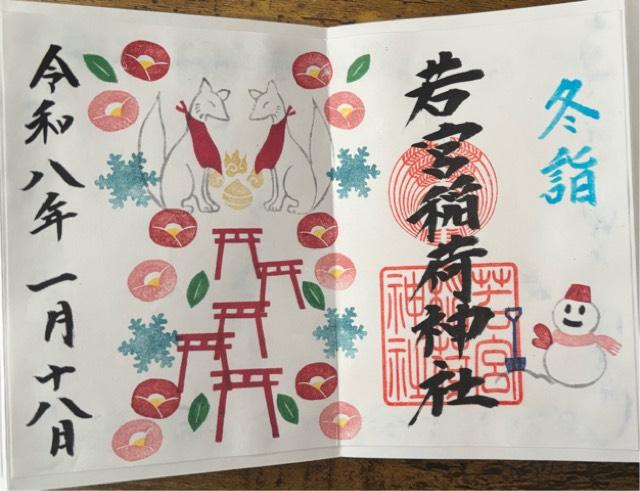 冬詣
若宮稲荷神社
若宮
稲荷
神社
令和八年 一月十八日